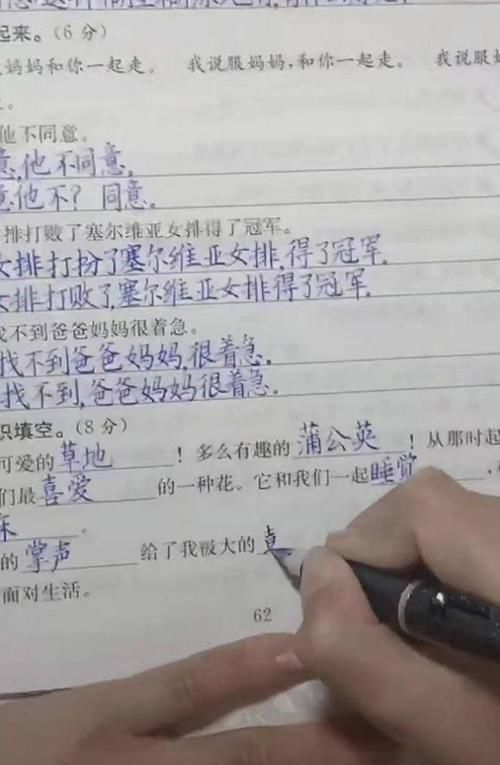 起来。(6分)
妈妈和你一起走。 我说服妈妈,和你一起走。 我说服妈
他不同意。
意,他不同意,
意,他不?同意.
排打败了塞尔维亚女排得了冠军。
女排打扮了塞尔维亚女排,得了冠军.
女排打败了,塞尔维亚女排得了冠军.
找不到爸爸妈妈很着急。
找不到爸爸妈妈,很着急.
找不到,爸爸妈妈很着急.
识填空。(8分)
可爱的草地!多么有趣的蒲公英!从那时起
们最喜爱的一种花。它和我们一起睡觉,
。
的掌声给了我极大的
面对生活。
62